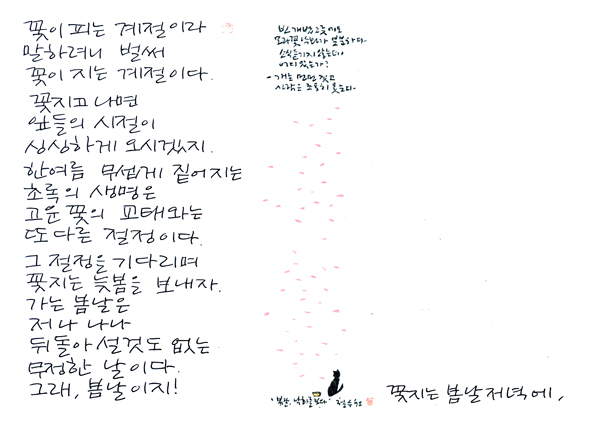 꽃이 피는 계절이라
말하려니 벌써
꽃이 지는 계절이다.
꽃지고 나면
잎들의 시절이
싱싱하게 오시겠지.
한여름 무섭게 짙어지는
초록의 생명은
고운 꽃의 교태와는
또다른 절정이다.
그 절정을 기다리며
꽃지는 늦봄을 보내자.
가는 봄날은
저나 나나
뒤돌아설것도 없는
무정한 날이다.
그래, 봄날이지!
꽃지는 봄날 저녁에,